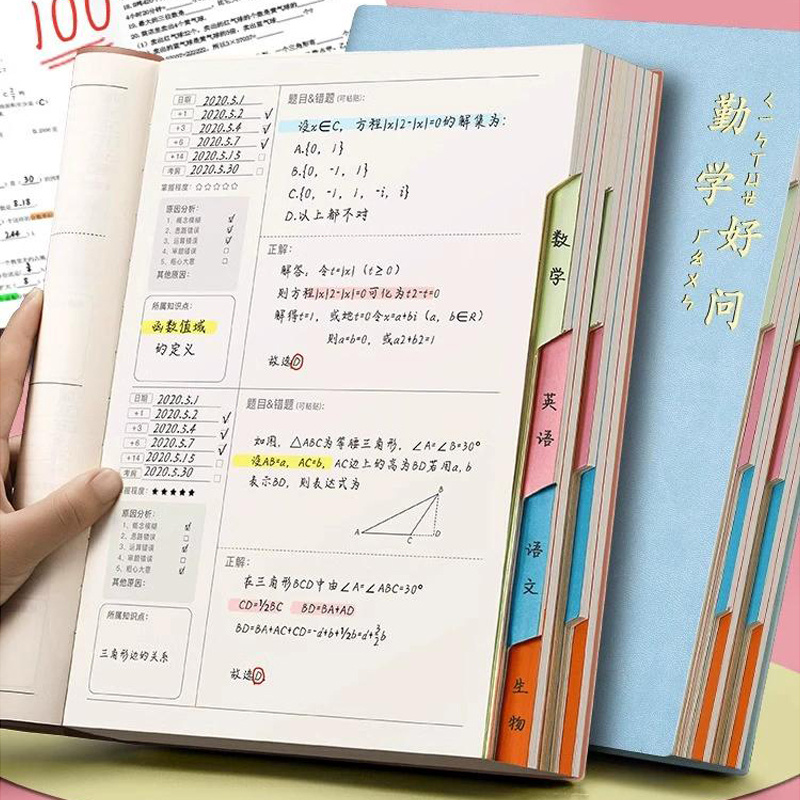 100
19. 最大的三位数是
数学
英语
语文
生物
勤学好问
日期 2020.5.1
+1 2020.5.2 √
+3 2020.5.4 √
+6 2020.5.7 √
+14 2020.5.15 □
考前 2020.5.30 □
掌握程度：☆☆☆☆☆
原因分析：
1、概念模糊 ☑
2、思路错误 ☑
3、运算错误 ☑
4、审题错误 □
5、粗心大意 □
其他原因：
所属知识点：
函数值域
的定义
题目&错题(可粘贴)：
设x∈C，方程|x|2-|x|=0的解集为：
A.{0，1}
B.{0，-1，1}
C.{0，-1，1，-i，i}
D.以上都不对
正解：
解答，令t=|x|（t≥0）
则方程|x|2-|x|=0可化为t2-t=0
解得t=1，或地t=0令x=a+bi（a，b∈R）
则a=b=0，或a2+b2=1
故选D
日期 2020.5.1
+1 2020.5.2 √
+3 2020.5.4 √
+6 2020.5.7 √
+14 2020.5.15 □
考前 2020.5.30 □
握程度：★★★★★
原因分析：
1、概念模糊 ☑
2、思路错误 □
3、运算错误 ☑
4、审题错误 □
5、粗心大意 ☑
其他原因：
所属知识点：
三角形边的关系
题目&错题(可粘贴)：
如图，△ABC为等腰三角形，∠A=∠B=30°
设AB=a，AC=b，AC边上的高为BD若用a,b
表示BD，则表达式为
A
B
C
D
正解：
在三角形BCD中由∠A=∠ABC=30°
CD=½BC BD=BA+AD
BD=BA+AC+CD=-d+b+½b=d+3/2b
故选D